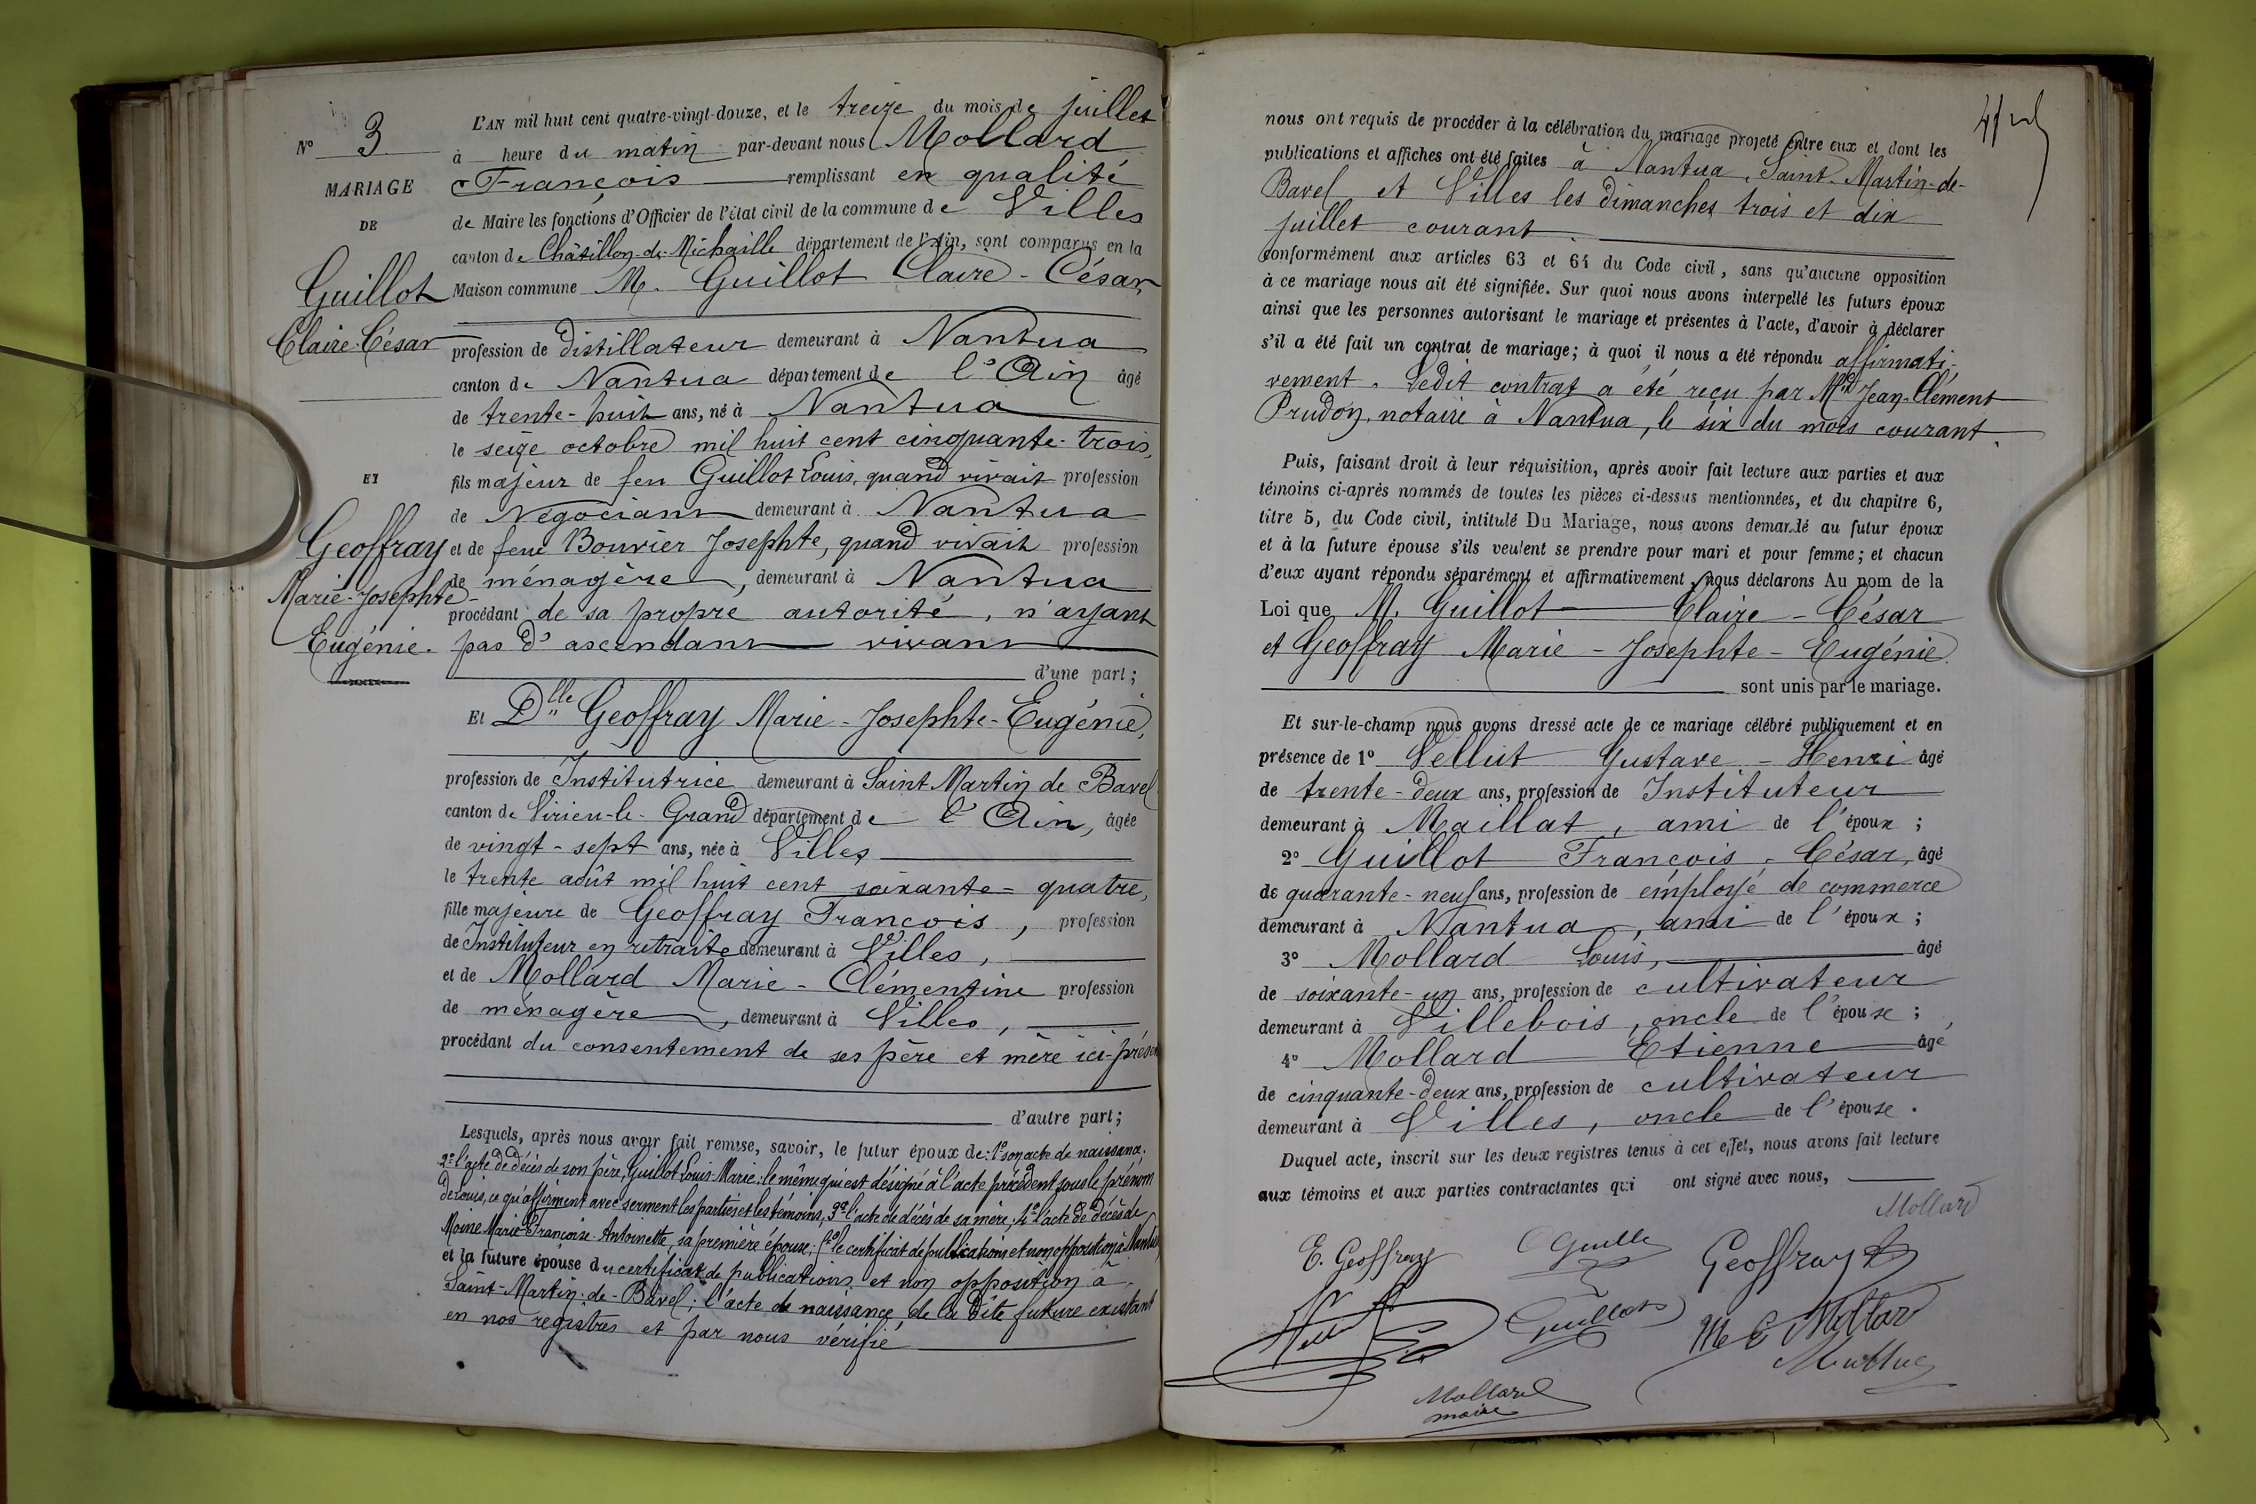 N° 3
MARIAGE
DE
Guillot
Claire-César
ET
Geoffray
Marie-Josephte-
Eugénie.
L'AN mil huit cent quatre-vingt-douze, et le treize du mois de juillet
à heure du matin par-devant nous Mollard
François remplissant en qualité
de Maire les fonctions d'Officier de l'état civil de la commune de Villes
canton de Châtillon-de-Michaille département de l'Ain, sont comparus en la
Maison commune M. Guillot Claire-César,
profession de distillateur demeurant à Nantua
canton de Nantua département de l'Ain âgé
de trente-huit ans, né à Nantua
le seize octobre mil huit cent cinquante-trois,
fils majeur de feu Guillot Louis, quand vivait profession
de Négociant demeurant à Nantua
et de feue Bouvier Josephte, quand vivait profession
de ménagère, demeurant à Nantua
procédant de sa propre autorité, n'ayant
pas d'ascendant vivant
d'une part;
Et Dlle Geoffray Marie-Josephte-Eugénie,
profession de Institutrice demeurant à Saint Martin de Bavel
canton de Virieu-le-Grand département de l'Ain, âgée
de vingt-sept ans, née à Villes
le trente août mil huit cent soixante-quatre,
fille majeure de Geoffray François, profession
de Instituteur en retraite demeurant à Villes,
et de Mollard Marie-Clémentine profession
de ménagère, demeurant à Villes,
procédant du consentement de ses père et mère ici-présen
d'autre part;
Lesquels, après nous avoir fait remise, savoir, le futur époux de: 1° son acte de naissance;
2° l'acte de décès de son père, Guillot Louis-Marie; le même qui est désigné à l'acte précédent sous le prénom
de Louis, ce qu'affirment avec serment les parties et les témoins, 3° l'acte de décès de sa mère, 4° l'acte de décès de
Moine Marie-Françoise-Antoinette, sa première épouse; 5° le certificat de publications et non opposition à Nantua
et la future épouse du certificat de publications et non opposition à
Saint-Martin-de-Bavel; l'acte de naissance de la dite future existant
en nos registres et par nous vérifié
nous ont requis de procéder à la célébration du mariage projeté entre eux et dont les
publications et affiches ont été faites à Nantua, Saint-Martin-de-
Bavel et Villes les dimanches trois et dix
juillet courant.
conformément aux articles 63 et 64 du Code civil, sans qu'aucune opposition
à ce mariage nous ait été signifiée. Sur quoi nous avons interpellé les futurs époux
ainsi que les personnes autorisant le mariage et présentes à l'acte, d'avoir à déclarer
s'il a été fait un contrat de mariage; à quoi il nous a été répondu affirmati-
vement. Ledit contrat a été reçu par Me Jean-Clément
Prudon, notaire à Nantua, le six du mois courant.
Puis, faisant droit à leur réquisition, après avoir fait lecture aux parties et aux
témoins ci-après nommés de toutes les pièces ci-dessus mentionnées, et du chapitre 6,
titre 5, du Code civil, intitulé Du Mariage, nous avons demandé au futur époux
et à la future épouse s'ils veulent se prendre pour mari et pour femme; et chacun
d'eux ayant répondu séparément et affirmativement, nous déclarons Au nom de la
Loi que M. Guillot Claire-César
et Geoffray Marie-Josephte-Eugénie.
sont unis par le mariage.
Et sur-le-champ nous avons dressé acte de ce mariage célébré publiquement et en
présence de 1° Vellut Gustave-Henri âgé
de trente-deux ans, profession de Instituteur
demeurant à Maillat, ami de l'époux;
2° Guillot François-César, âgé
de quarante-neuf ans, profession de employé de commerce
demeurant à Nantua, ami de l'époux;
3° Mollard Louis, âgé
de soixante-un ans, profession de cultivateur
demeurant à Villebois, oncle de l'épouse;
4° Mollard Etienne âgé
de cinquante-deux ans, profession de cultivateur
demeurant à Villes, oncle de l'épouse.
Duquel acte, inscrit sur les deux registres tenus à cet effet, nous avons fait lecture
aux témoins et aux parties contractantes qui ont signé avec nous,
Mollard
E. Geoffray Geoffray
Guillot Mollard
Mollard
maire